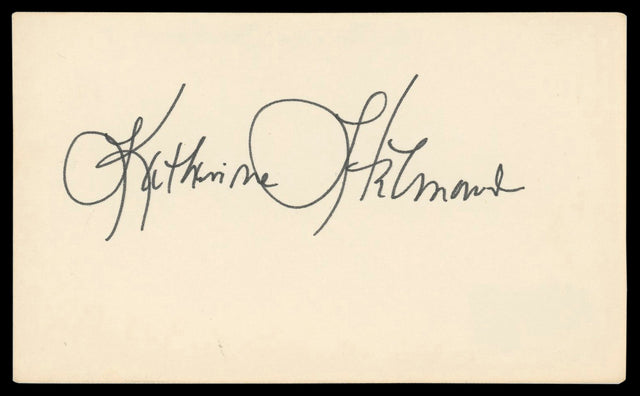 Katherine Helmond